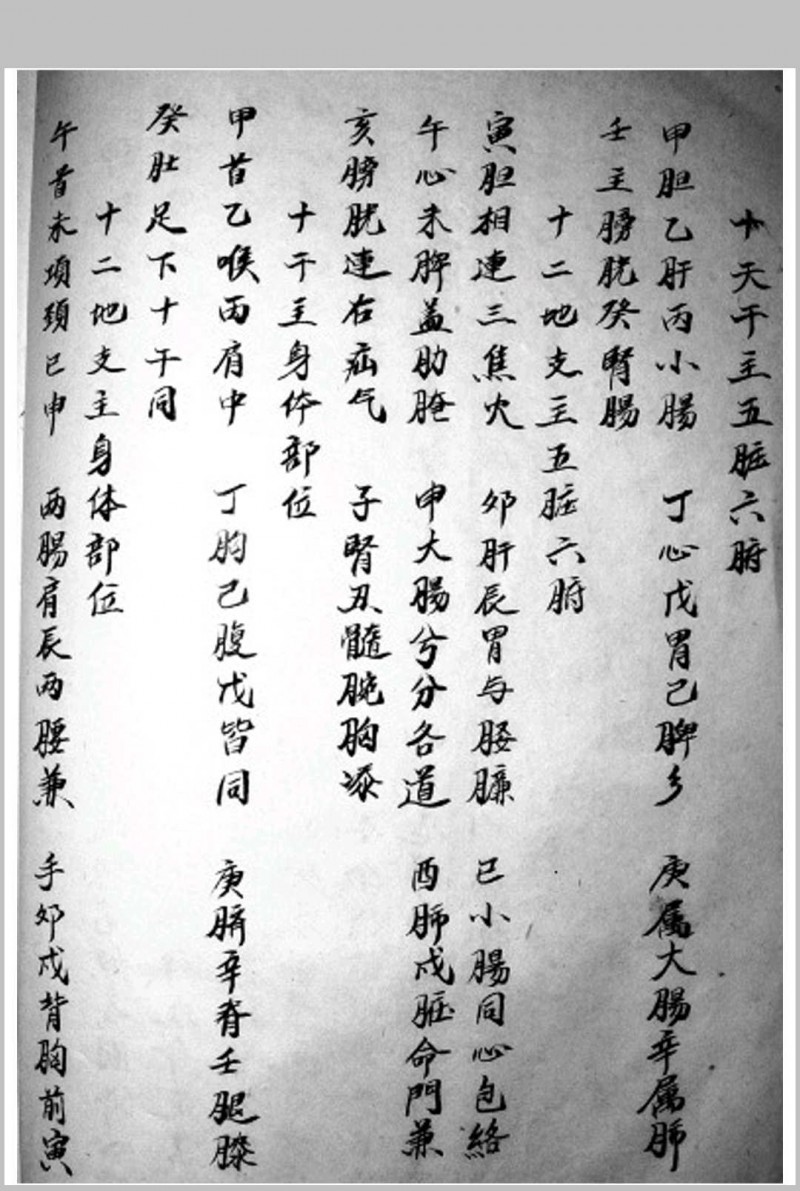 十天干主五脏六腑
甲胆乙肝丙小腸 丁心戊胃己脾乡 庚属大腸辛属肺
壬主膀胱癸腎腸
十二地支主五脏六腑
寅胆相連三焦火 卯肝辰胃与腰臁 巳小腸同心包絡
午心未脾盖肋腌 申大腸兮分各道 酉肺戌脏命門兼
亥膀胱連右疝气 子腎丑髓腕胸添
十干主身体部位
甲首乙喉丙肩中 丁胸己腹戊皆同 庚臍辛脊壬腿膝
癸肚足下十干同
十二地支主身体部位
午首未項頚巳申 两腸肩辰两腰兼 手卯戍背胸前寅